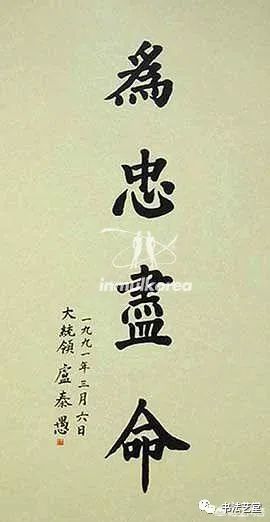 為忠盡命
一九九一年三月六日
大統領 盧泰愚
inmulkorea
书法艺堂